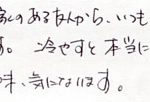 のあるなんから、いつも
す。冷やすと本当に
味、気になります。